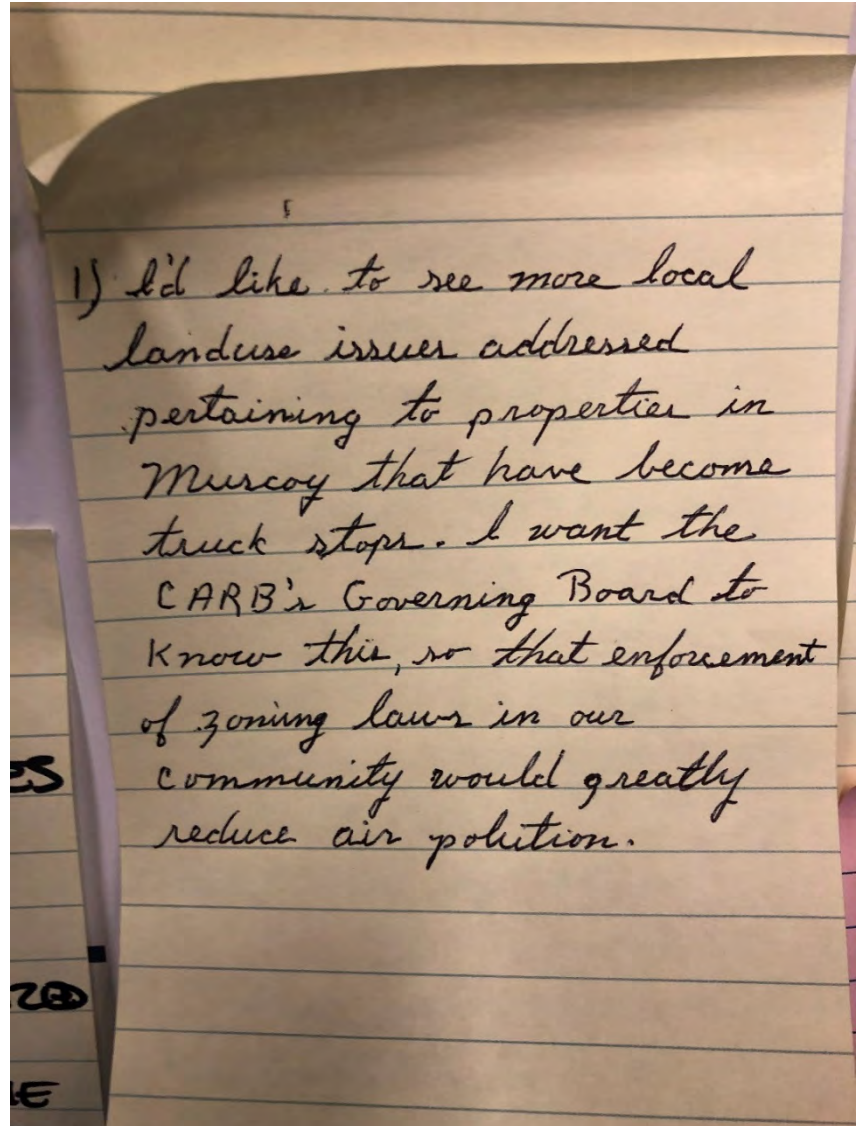 1) I'd like to see more local
landuse issues addressed
pertaining to properties in
Muscoy that have become
truck stops. I want the
CARB's Governing Board to
Know this, so that enforcement
of zoning laws in our
community would greatly
reduce air polution.
ES
20
E